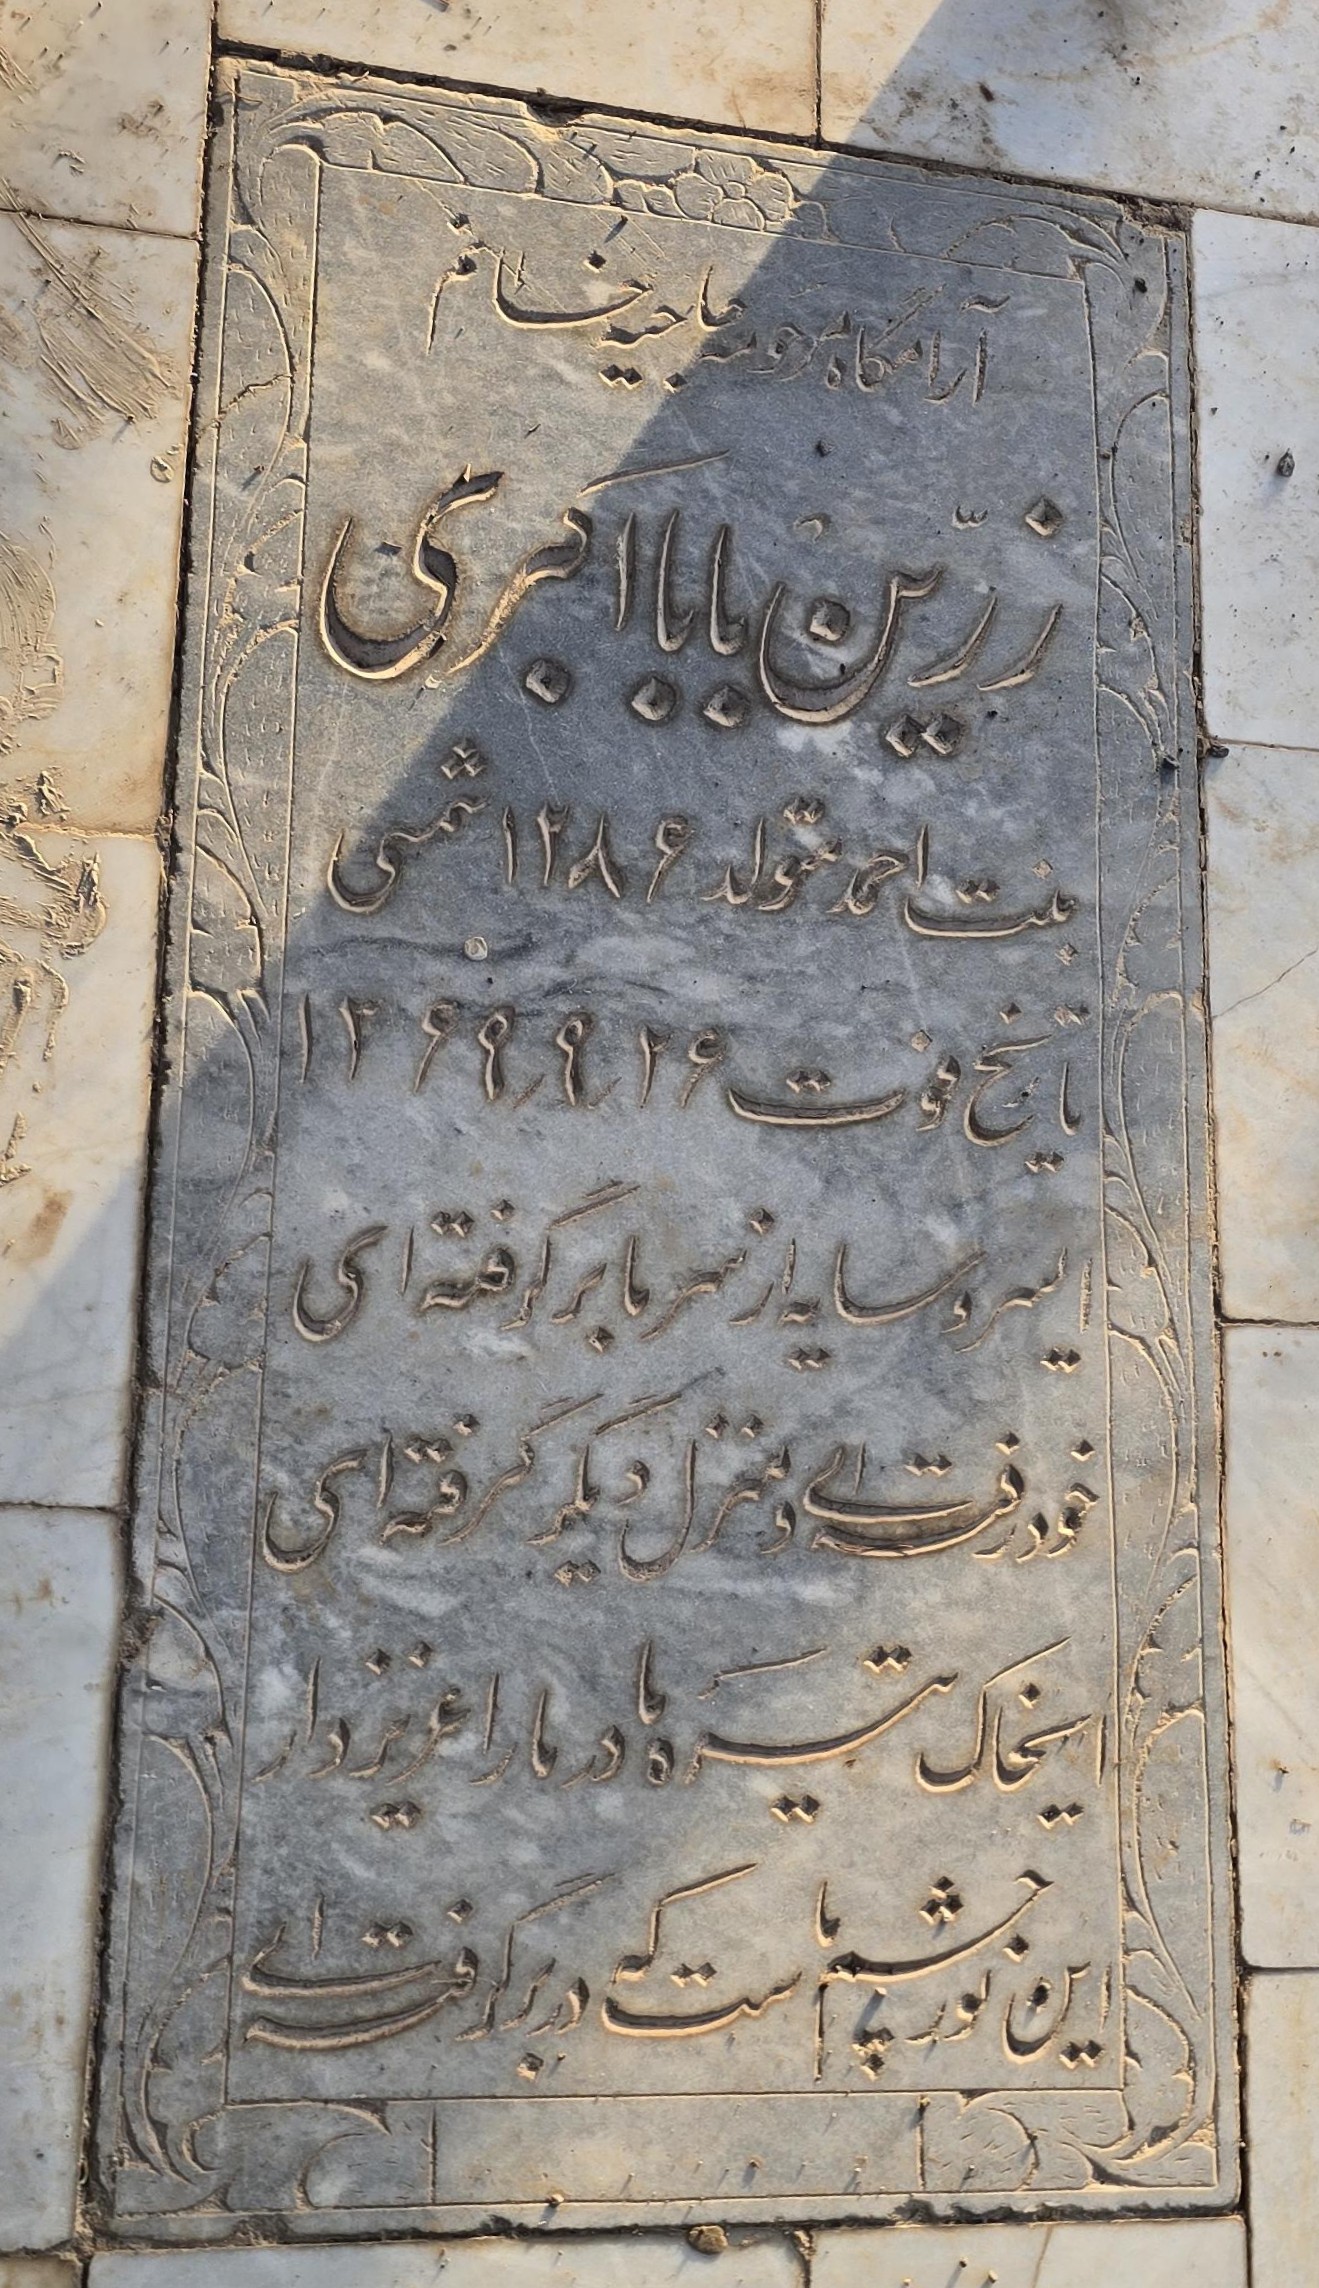 آرامگاه مرحومه حاجیه خانم
زرّین بابا اکبری
بنت احمد متولد ۱۲۸۶ شمسی
تاریخ فوت ۲۶ر۹ر۱۳۶۹
ای سرو سایه از سر ما برگرفته ای
خود رفته ای و منزل دیگر گرفته ای
ای خاک تیره مادر ما را عزیز دار
این نور چشم ماست که در بر گرفته ای